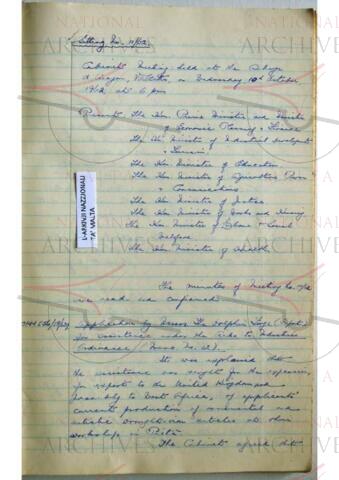 Sitting No. 11/62.
Cabinet Meeting held at the Auberge
d'Aragon, Valletta on Wednesday 10th October
1962 at 6 pm
Present: The Hon Prime Minister and Minister
of Economic Planning & Finance
The Hon Minister of Industrial Development
& Tourism
The Hon Minister of Education
The Hon Minister of Agriculture Power
& Communications
The Hon Minister of Justice
The Hon Minister of Works and Housing
The Hon Minister of Labour & Social
Welfare
The Hon Minister of Health
L-ARKIVJI NAZZJONALI
TA' MALTA
The minutes of Meeting No. 10/62
were read and confirmed
Application by Messrs The Dolphin Forge
for assistance under the Aids to Industries
Ordinance (Memo No. ).
It was explained that
the assistance was sought for the expansion,
for export to the United Kingdom and
possibly to West Africa, of applicants'
current production of ornamental and
artistic wrought iron articles at their
workshop in Pietà.
The Cabinet agreed that
NATIONAL
ARCHIVES